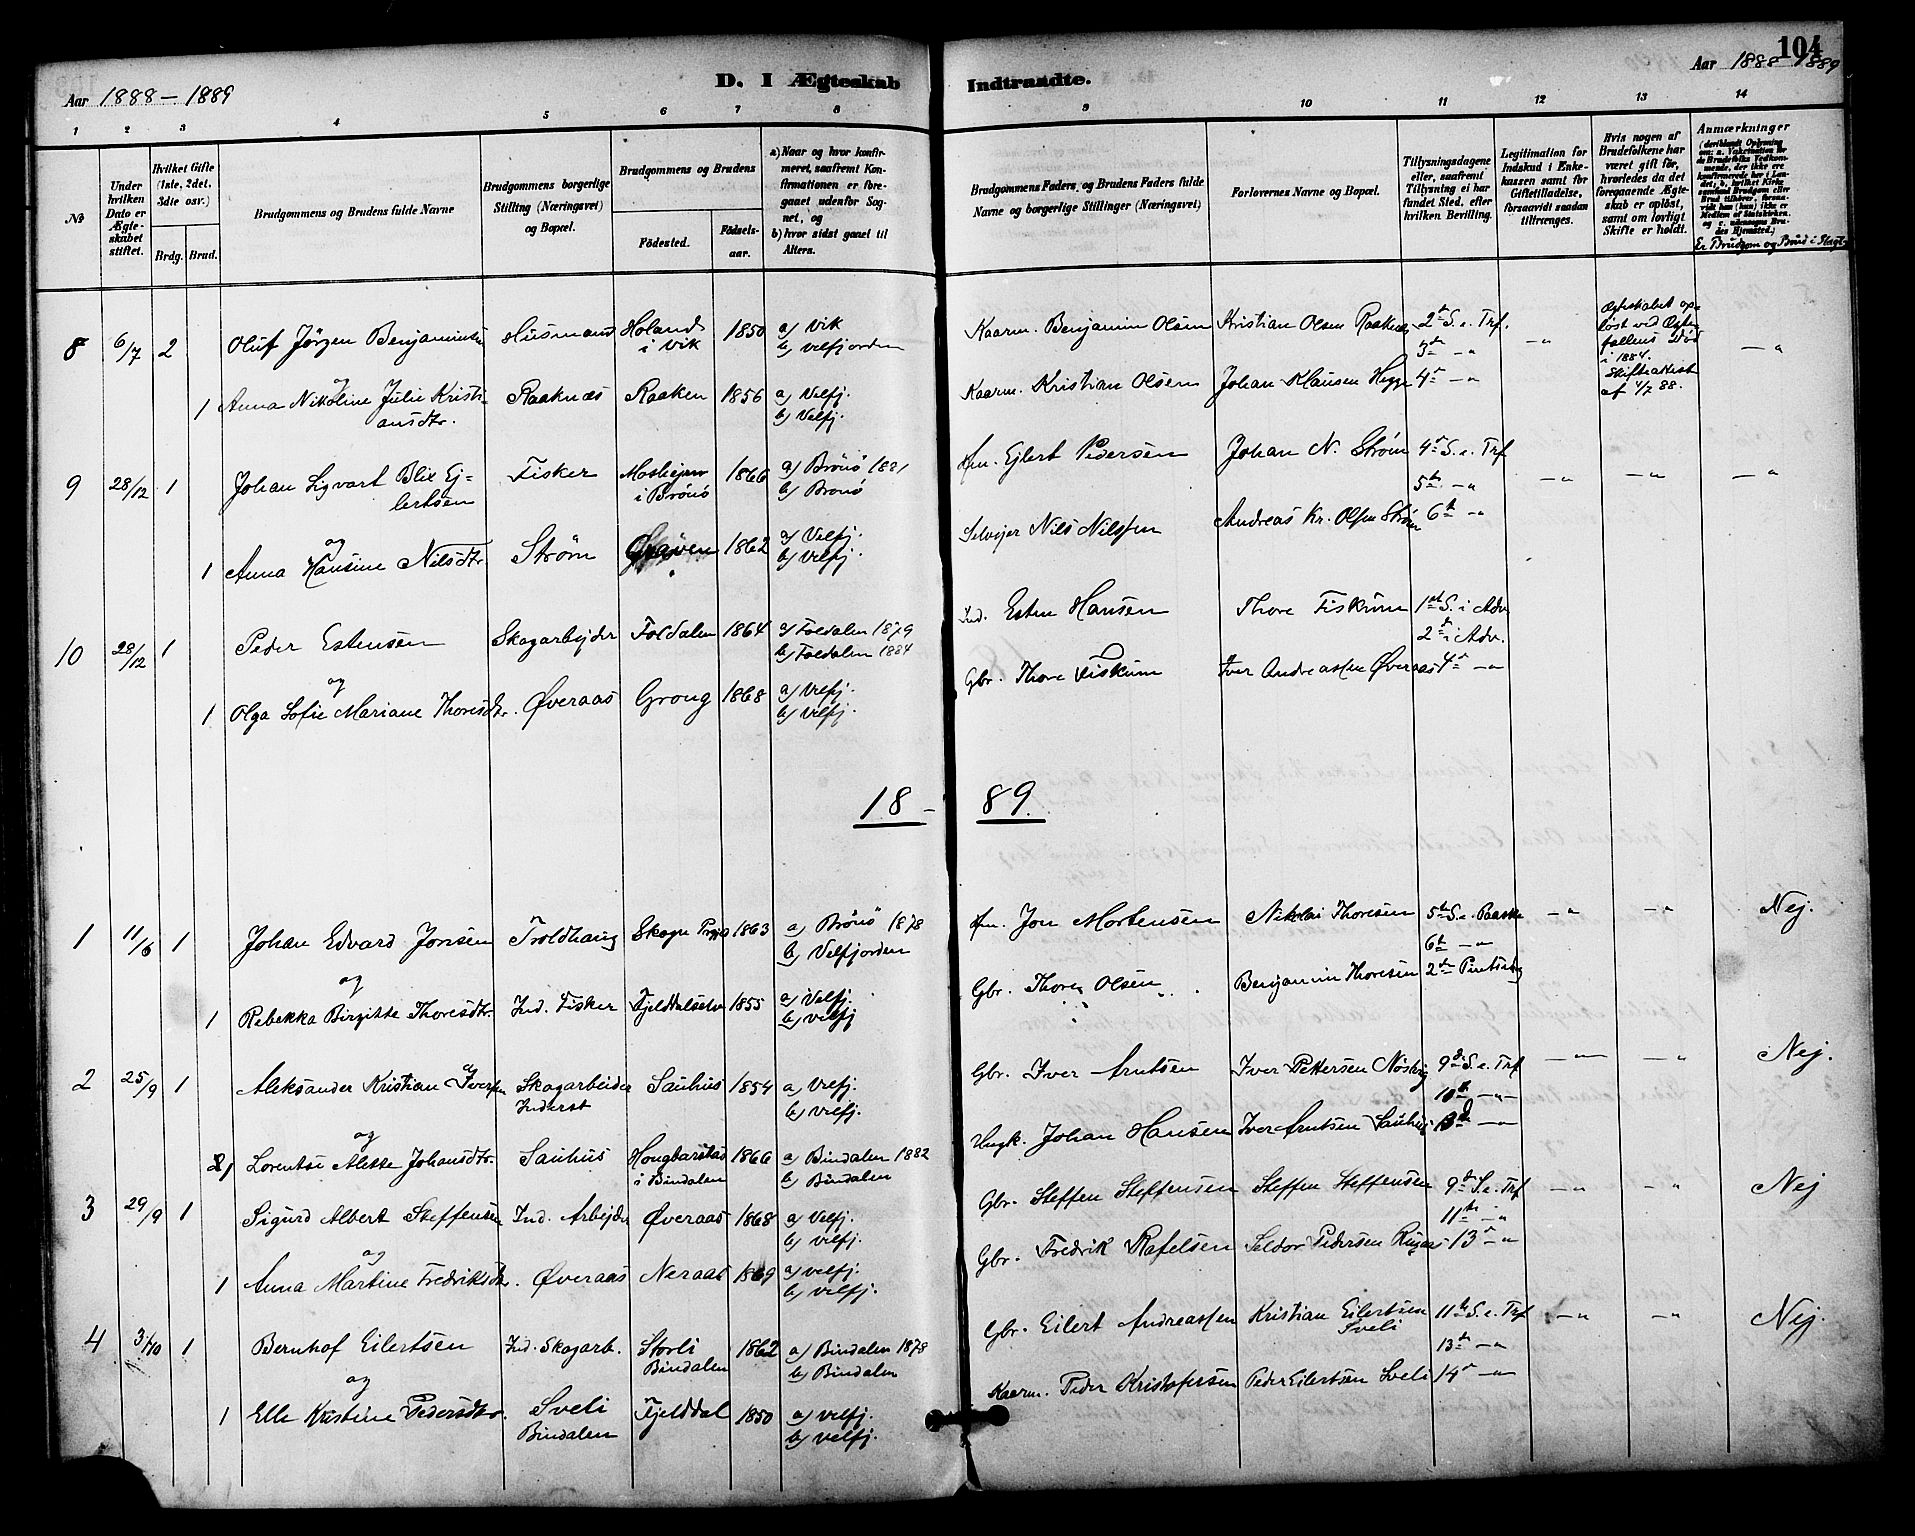 104
Aar 1888-1889
D. I Ægteskab Indtraadte.
Aar 1888-1889
1 2 3 4 5 6 7 8 9 10 11 12 13 14
No
Under hvilken Dato er Ægteskabet stiftet.
Hvilket Gifte (1ste, 2det, 3die osv.)
Brdg. Brud.
Brudgommens og Brudens fulde Navne
Brudgommens borgerlige Stilling (Næringsvei) og Bopæl.
Brudgommens og Brudens
Födested.
Födselsaar.
a) Naar og hvor konfirmeret, saafremt Konfirmationen er foregaaet udenfor Sognet, og
b) hvor sidst gaaet til Alters.
Brudgommens Faders, og Brudens Faders fulde Navne og borgerlige Stillinger (Næringsvei)
Forlovernes Navne og Bopæl.
Tillysningsdagene eller, saafremt Tillysning ei har fundet Sted, efter hvilken Bevilling.
Legitimation for Indskud i Enkekassen samt for Giftetilladelse, forsaavidt saadan tiltrænges.
Hvis nogen af Brudefolkene har været gift før, hvorledes da det foregaaende Ægteskab er opløst, samt om lovligt Skifte er holdt.
Anmærkninger
Er Brudgom og Brud i Slægt
8 6/7 2 Oluf Jörgen Benjaminsen Husmand Holand i Vik 1850 a) Vik b) Velfjorden Kaarm. Benjamin Olsen Kristian Olsen Raaknes 2den S. e. Trf. 3die -"- -"- Ægteskabet opløst ved Ægtefællens Død i 1884. Skifteattest af 4/7 88. -"
og
1 Anna Nikoline Julie Kristiansdtr. Raaknæs Raaken 1856 a) Velfj. b) Velfj. Kaarm. Kristian Olsen Johan Klausen Hegge 4de -"
9 28/12 1 Johan Sigvart Blix Ejlertsen Fisker i Brönö 1866 a) Brönö 1881 b) Brönö Ejlert Pedersen Johan N. Strøm 4de S. e. Trf 5te -" -" -" -"
og
1 Anna Hansine Nilsdtr. Strøm 1862 a) Velfj. b) Velfj. Selvejer Nils Nilssen Andreas Kr. Olsen Strøm 6te -"
10 28/12 1 Peder Estensen Skogarbejder Foldalen 1864 a) Foldalen 1879 b) Foldalen 1884 Ind. Esten Hansen Thore Fiskum 1ste S. i Adv. 2den i Adv.
og
1 Olga Sofie Mariane Thoresdtr. Øveraas Grong 1868 a) Velfj. b) Velfj. Gbr. Thore Fiskum Iver Andreassen Øveraas 4de -"
18-89.
1 11/6 1 Johan Edvard Jonsen Troldhaug 1863 a) Brönö 1878 b) Velfjorden Jon Mortensen Nikolai Thoresen 5te S. e. Paaske 6te -" -" -" Nej.
og
1 Rebekka Birgitte Thoresdtr. Ind. Fisker Fjelddalselv 1855 a) Velfj. b) Velfj Gbr. Thore Olsen Benjamin Thoresen 2den Pintsedag
2 25/9 1 Aleksander Kristian Iversen Skogarbeider Inderst Sauhus 1854 a) Velfj. b) Velfj. Gbr. Iver Arntsen Iver Pettersen 9de S. e. Trf 10de -" -"- -" Nej.
og
1 Lorentse Alette Johansdtr. Sauhus i Bindalen 1866 a) Bindalen 1882 b) Bindalen Johan Hansen Iver Arntsen Sauhus 13de -"
3 29/9 1 Sigurd Albert Steffensen Ind. Arbejder Øveraas 1868 a) Velfj. b) Velfj. Gbr. Steffen Steffensen Steffen Steffensen 9de S. e. Trf 11te -" -" -" Nej
og
1 Anna Martine Fredriksdtr. Øveraas Neraas 1869 a) velfj. b) velfj. Gbr. Fredrik Rafelsen Pedersen 13de -"
4 31/10 1 Bernhof Eilertsen Ind. Skogarb. Storli Bindalen 1862 a) Bindalen 1878 b) Bindalen Gbr. Eilert Andreassen Kristian Eilertsen Sveli 11te S. e. Trf 13de -" -" -" Nej.
og
1 Elle Kristine Pedersdtr. Sveli Bindalen Fjelddal 1850 a) velfj. b) velfj. Kaarm. Peder Kristofersen Peder Eilertsen Sveli 14de -"